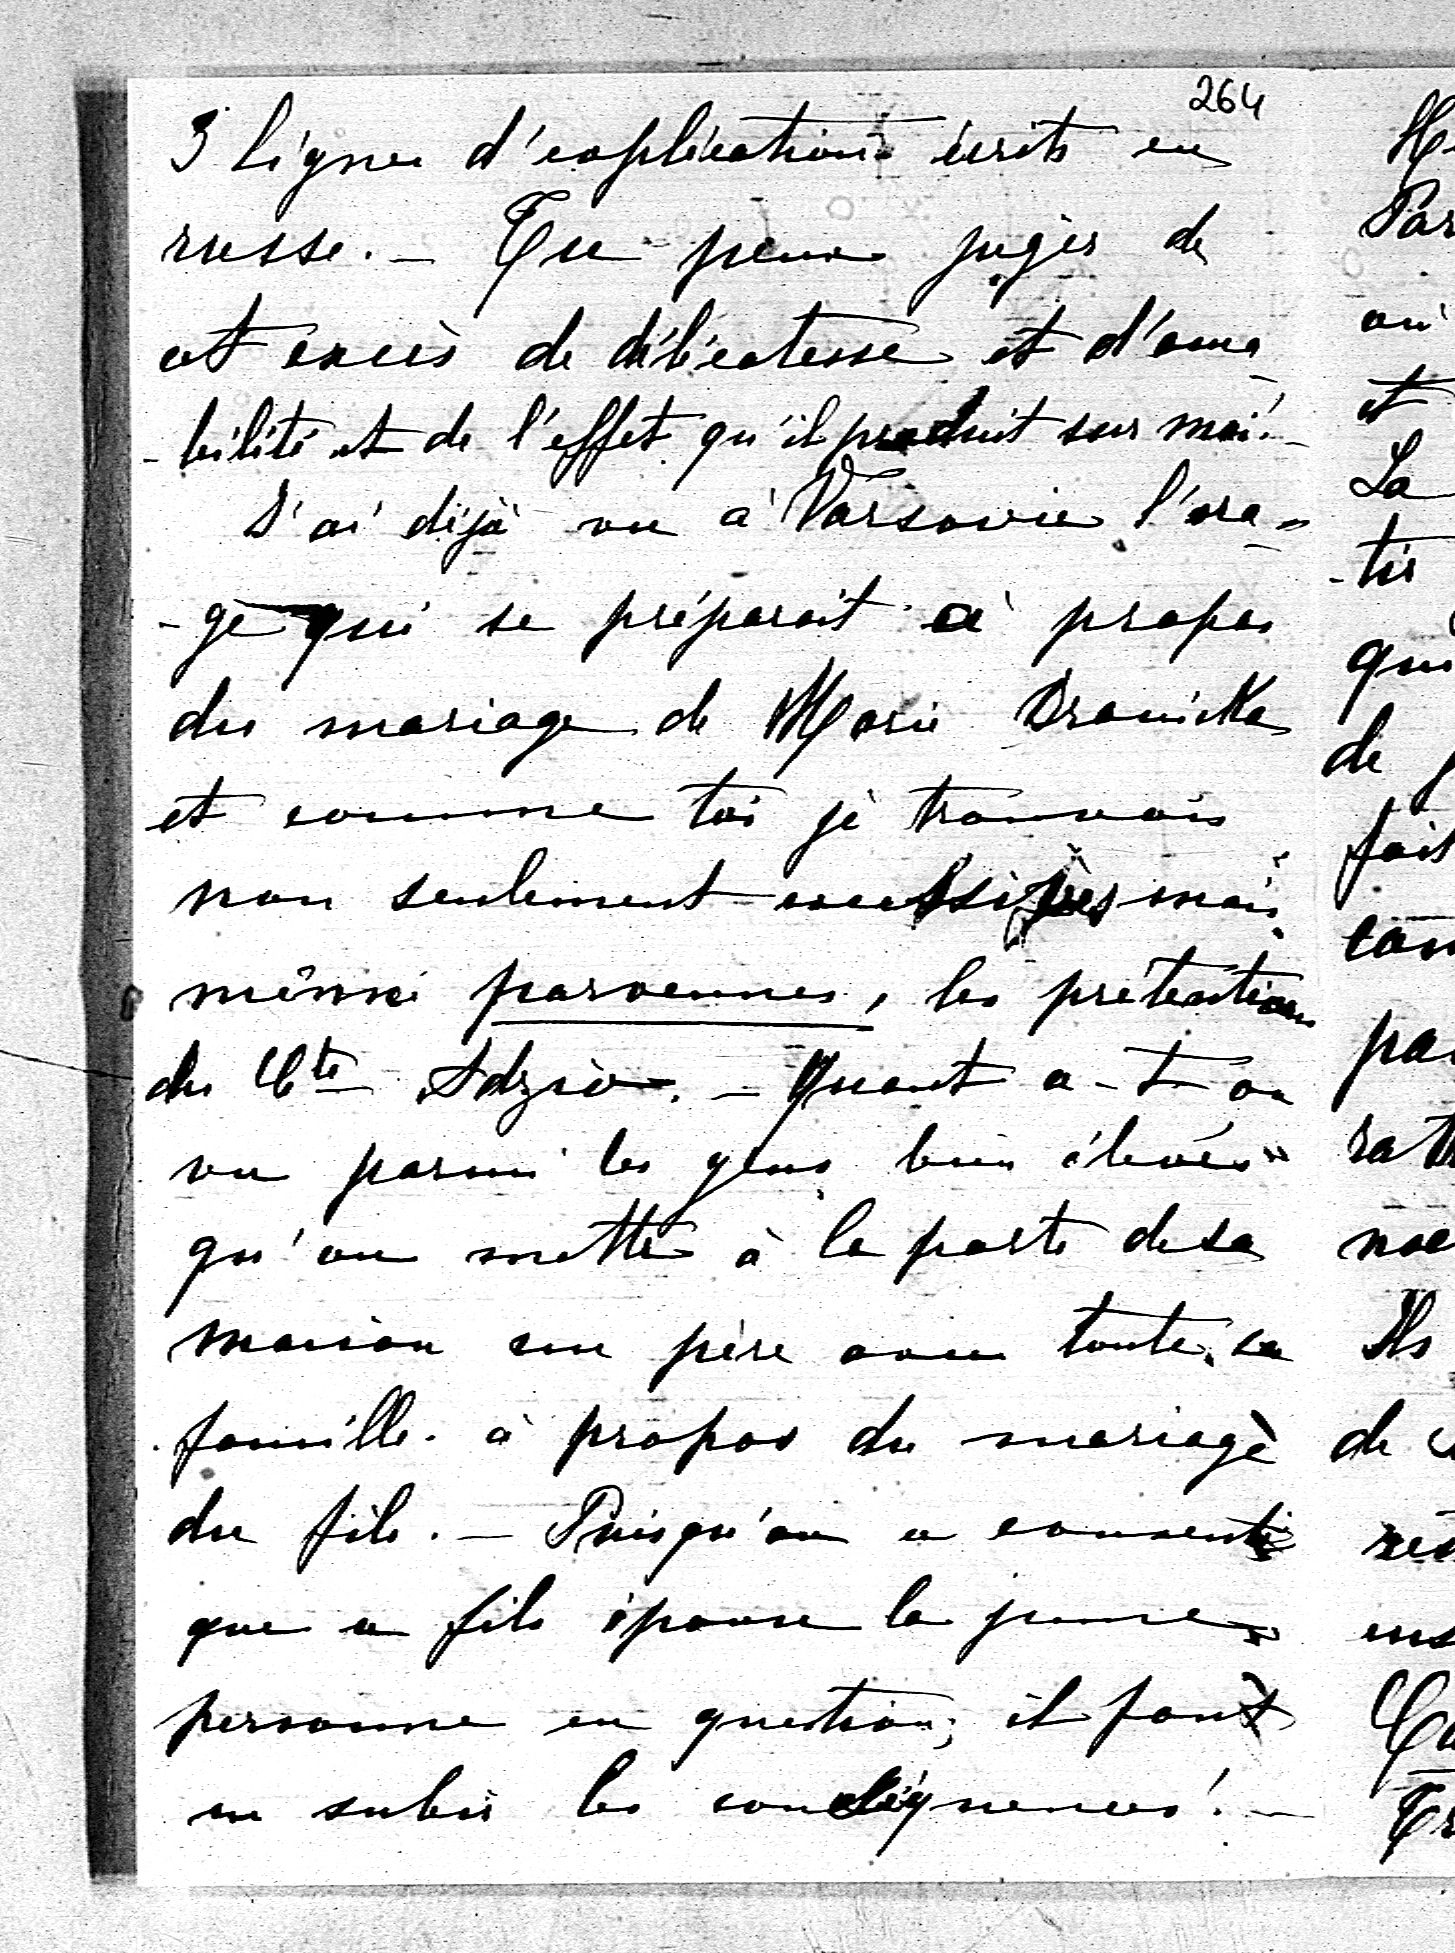 264
3 lignes d'explications écrits en
russe. _ Tu peux juger de
cet excès de délicatesse et d'ama
- bilité et de l'effet qu'il produit sur moi! -
J'ai déjà vu à Varsovie l'ora-
- ge qui se préparait à propos
du mariage de Marie Branicka
et comme toi je trouvais
non seulement excessives mais
même parvenues, les prétentions
du Cte Adzio. _ Quant a-t-on
vu parmi les gens bien élevés
qu'on mette à la porte de sa
maison un père avec toute sa
famille à propos du mariage
du fils. _ Puisqu'on a consenti
que ce fils épouse la jeune
personne en question, il faut
en subir les conséquences! _